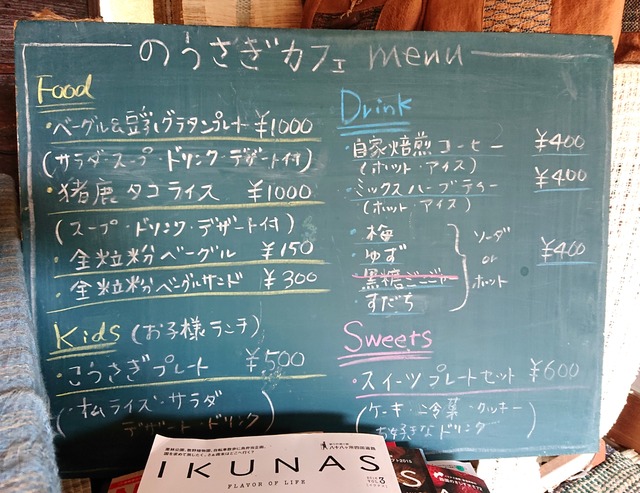 のうさぎカフェ menu
Food
・ベーグル&豆乳グラタンプレート ¥1000
(サラダ・スープ・ドリンク・デザート付)
・猪鹿タコライス ¥1000
(スープ・ドリンク・デザート付)
・全粒粉ベーグル ¥150
・全粒粉ベーグルサンド ¥300
Kids (お子様ランチ)
・こうさぎプレート ¥500
(オムライス・サラダ
デザート・ドリンク)
Drink
・自家焙煎コーヒー ¥400
(ホット・アイス)
・ミックスハーブティー ¥400
(ホット・アイス)
・梅
・ゆず
・黒糖
・すだち
ソーダ
or
ホット
¥400
Sweets
・スイーツプレートセット ¥600
(ケーキ・冷菓・クッキー
お好きなドリンク)
IKUNAS
FLAVOR OF LIFE
VOL.3